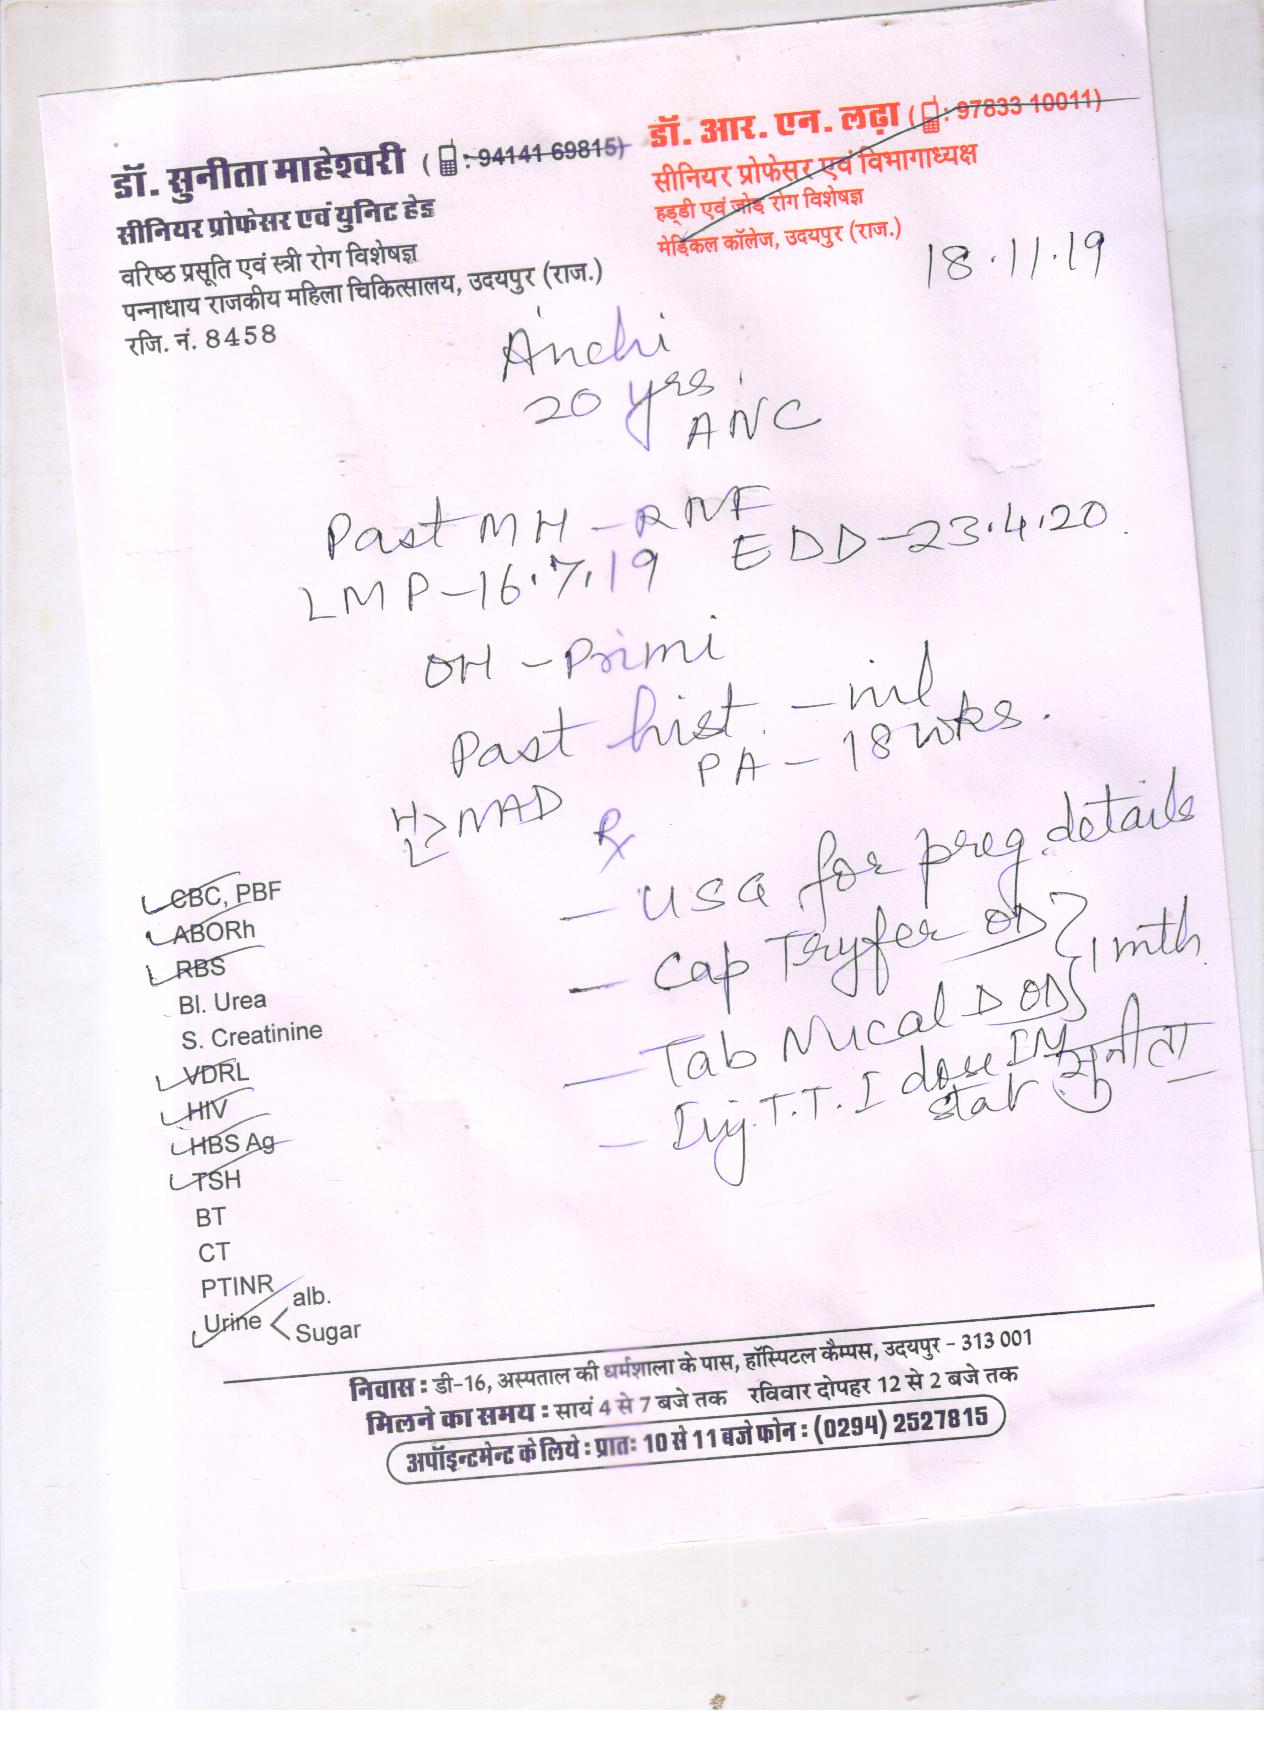 डॉ. सुनीता माहेश्वरी ( : 94141 69815)
सीनियर प्रोफेसर एवं युनिट हेड
वरिष्ठ प्रसूति एवं स्त्री रोग विशेषज्ञ
पन्नाधाय राजकीय महिला चिकित्सालय, उदयपुर (राज.)
रजि. नं. 8458
डॉ. आर. एन. लढ़ा ( : 97833 10011)
सीनियर प्रोफेसर एवं विभागाध्यक्ष
हड्डी एवं जोड़ रोग विशेषज्ञ
मेडिकल कॉलेज, उदयपुर (राज.)
18.11.19
Anchi
20 yrs.
ANC
Past MH - RNF
LMP - 16.7.19 EDD - 23.4.20.
OH - Primi
Past hist. - nil
PA - 18 wks.
H
L > NAD
Rx
- USG for preg. details
- Cap Tryfer OD } 1 mth.
- Tab Nucal D OD
- Inj. T.T. I dose IM
stat सुनीता
CBC, PBF
ABORh
RBS
Bl. Urea
S. Creatinine
VDRL
HIV
HBS Ag
TSH
BT
CT
PTINR
Urine < alb.
Sugar
निवास : डी-16, अस्पताल की धर्मशाला के पास, हॉस्पिटल कैम्पस, उदयपुर - 313 001
मिलने का समय : सायं 4 से 7 बजे तक रविवार दोपहर 12 से 2 बजे तक
अपॉइन्टमेन्ट के लिये : प्रातः 10 से 11 बजे फोन : (0294) 2527815